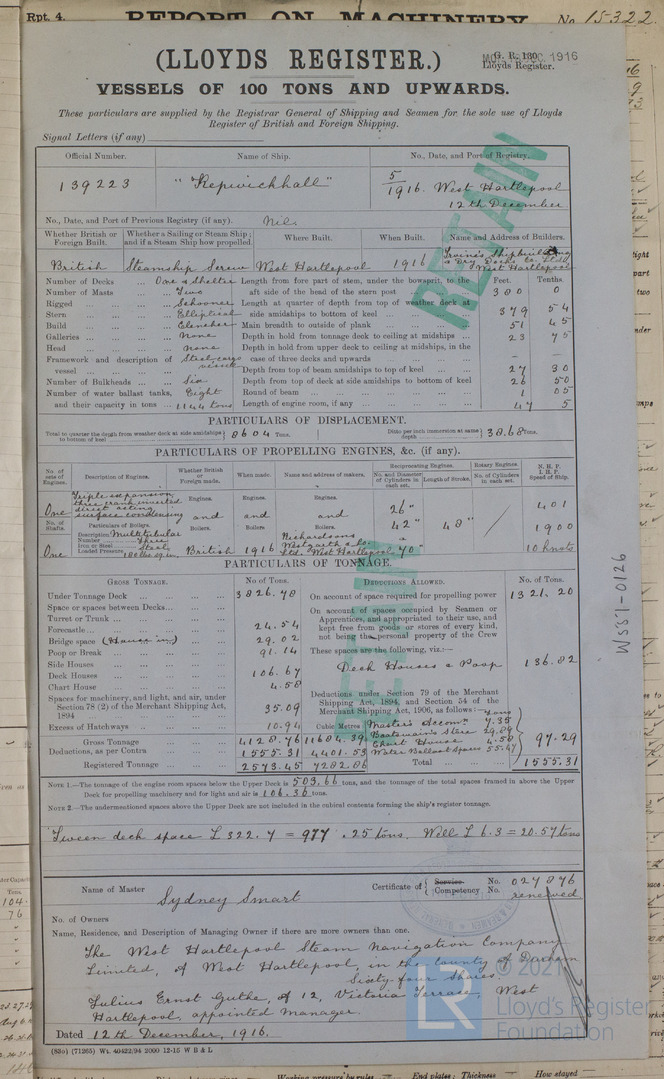 Rpt. 4. REPORT ON MACHINERY No. 15322.
(LLOYDS REGISTER.)
G. R. 130
Lloyds Register.
1916
VESSELS OF 100 TONS AND UPWARDS.
These particulars are supplied by the Registrar General of Shipping and Seamen for the sole use of Lloyds
Register of British and Foreign Shipping.
Signal Letters (if any)
Official Number. Name of Ship. No., Date, and Port of Registry.
139223 "Kepwickhall" 5/1916. West Hartlepool
12th December
No., Date, and Port of Previous Registry (if any). Nil.
Whether British or Foreign Built. Whether a Sailing or Steam Ship; and if a Steam Ship how propelled. Where Built. When Built. Name and Address of Builders.
British Steamship Screw West Hartlepool 1916 Irvine's Shipbuilding & Dry Docks Co. Ltd. West Hartlepool
RETAIN
Number of Decks One & Shelter Length from fore part of stem, under the bowsprit, to the aft side of the head of the stern post Feet. Tenths. 380 0
Number of Masts Two
Rigged Schooner Length at quarter of depth from top of weather deck at side amidships to bottom of keel 379 54
Stern Elliptical
Build Clencher Main breadth to outside of plank 51 45
Galleries None Depth in hold from tonnage deck to ceiling at midships 23 75
Head None Depth in hold from upper deck to ceiling at midships, in the case of three decks and upwards – –
Framework and description of vessel Steel cargo vessel
Depth from top of beam amidships to top of keel 27 30
Number of Bulkheads Six Depth from top of deck at side amidships to bottom of keel 26 50
Number of water ballast tanks, Eight Round of beam 1 05
and their capacity in tons 1144 tons Length of engine room, if any 47 5
PARTICULARS OF DISPLACEMENT.
Total to quarter the depth from weather deck at side amidships to bottom of keel 8604 Tons. Ditto per inch immersion at same depth 38.68 Tons.
PARTICULARS OF PROPELLING ENGINES, &c. (if any).
No. of sets of Engines. Description of Engines. Whether British or Foreign made. When made. Name and address of makers. Reciprocating Engines. No. and Diameter of Cylinders in each set. Length of Stroke. Rotary Engines. No. of Cylinders in each set. N. H. P. I. H. P. Speed of Ship.
One Triple expansion three crank inverted direct acting surface condensing
Engines. and Boilers. Engines. and Boilers. Engines. and Boilers.
26" 42" 70" 48" 401 1900 10 knots
No. of Shafts. One
Particulars of Boilers.
Description Multitubular
Number Three
Iron or Steel Steel
Loaded Pressure 180 lbs sq. in.
British 1916 Richardsons Westgarth & Co. Ltd. West Hartlepool
PARTICULARS OF TONNAGE.
RETAIN
GROSS TONNAGE. No. of Tons. DEDUCTIONS ALLOWED. No. of Tons.
Under Tonnage Deck 3826.78 On account of space required for propelling power 1321.20
Space or spaces between Decks
Turret or Trunk
On account of spaces occupied by Seamen or Apprentices, and appropriated to their use, and kept free from goods or stores of every kind, not being the personal property of the Crew
Forecastle 24.54
Bridge space 29.02
Poop or Break 91.14 These spaces are the following, viz.:—
Side Houses Deck Houses & Poop 136.82
Deck Houses 106.67
Chart House 4.58
Spaces for machinery, and light, and air, under Section 78 (2) of the Merchant Shipping Act, 1894 35.09
Deductions under Section 79 of the Merchant Shipping Act, 1894, and Section 54 of the Merchant Shipping Act, 1906, as follows:— tons
Excess of Hatchways 10.94 Cubic Metres
Master's Accomn. 7.35
Boatswain's Store 29.89
Chart House 4.58
Water Ballast Space 55.47
97.29
Gross Tonnage 4128.76 11684.39
Deductions, as per Contra 1555.31 4401.53
Registered Tonnage 2573.45 7282.86 Total 1555.31
NOTE 1.—The tonnage of the engine room spaces below the Upper Deck is 503.66 tons, and the tonnage of the total spaces framed in above the Upper
Deck for propelling machinery and for light and air is 106.36 tons.
NOTE 2.—The undermentioned spaces above the Upper Deck are not included in the cubical contents forming the ship's register tonnage.
Tween deck space L 322.7 = 977.25 tons. Well L 6.3 = 20.57 tons
Name of Master Sydney Smart Certificate of Service No. Competency No. 027876 renewed
No. of Owners
Name, Residence, and Description of Managing Owner if there are more owners than one.
The West Hartlepool Steam Navigation Company
Limited, of West Hartlepool, in the County of Durham
Sixty four Shares
Julius Ernst Guthe, of 12, Victoria Terrace, West
Hartlepool, appointed Manager.
Dated 12th December, 1916.
(83o) (71265) Wt. 40422/94 2000 12-15 W B & L
WSS1-0126
LR © 2021
Lloyd's Register
Foundation
Working pressure by rules End plates; Thickness How stayed